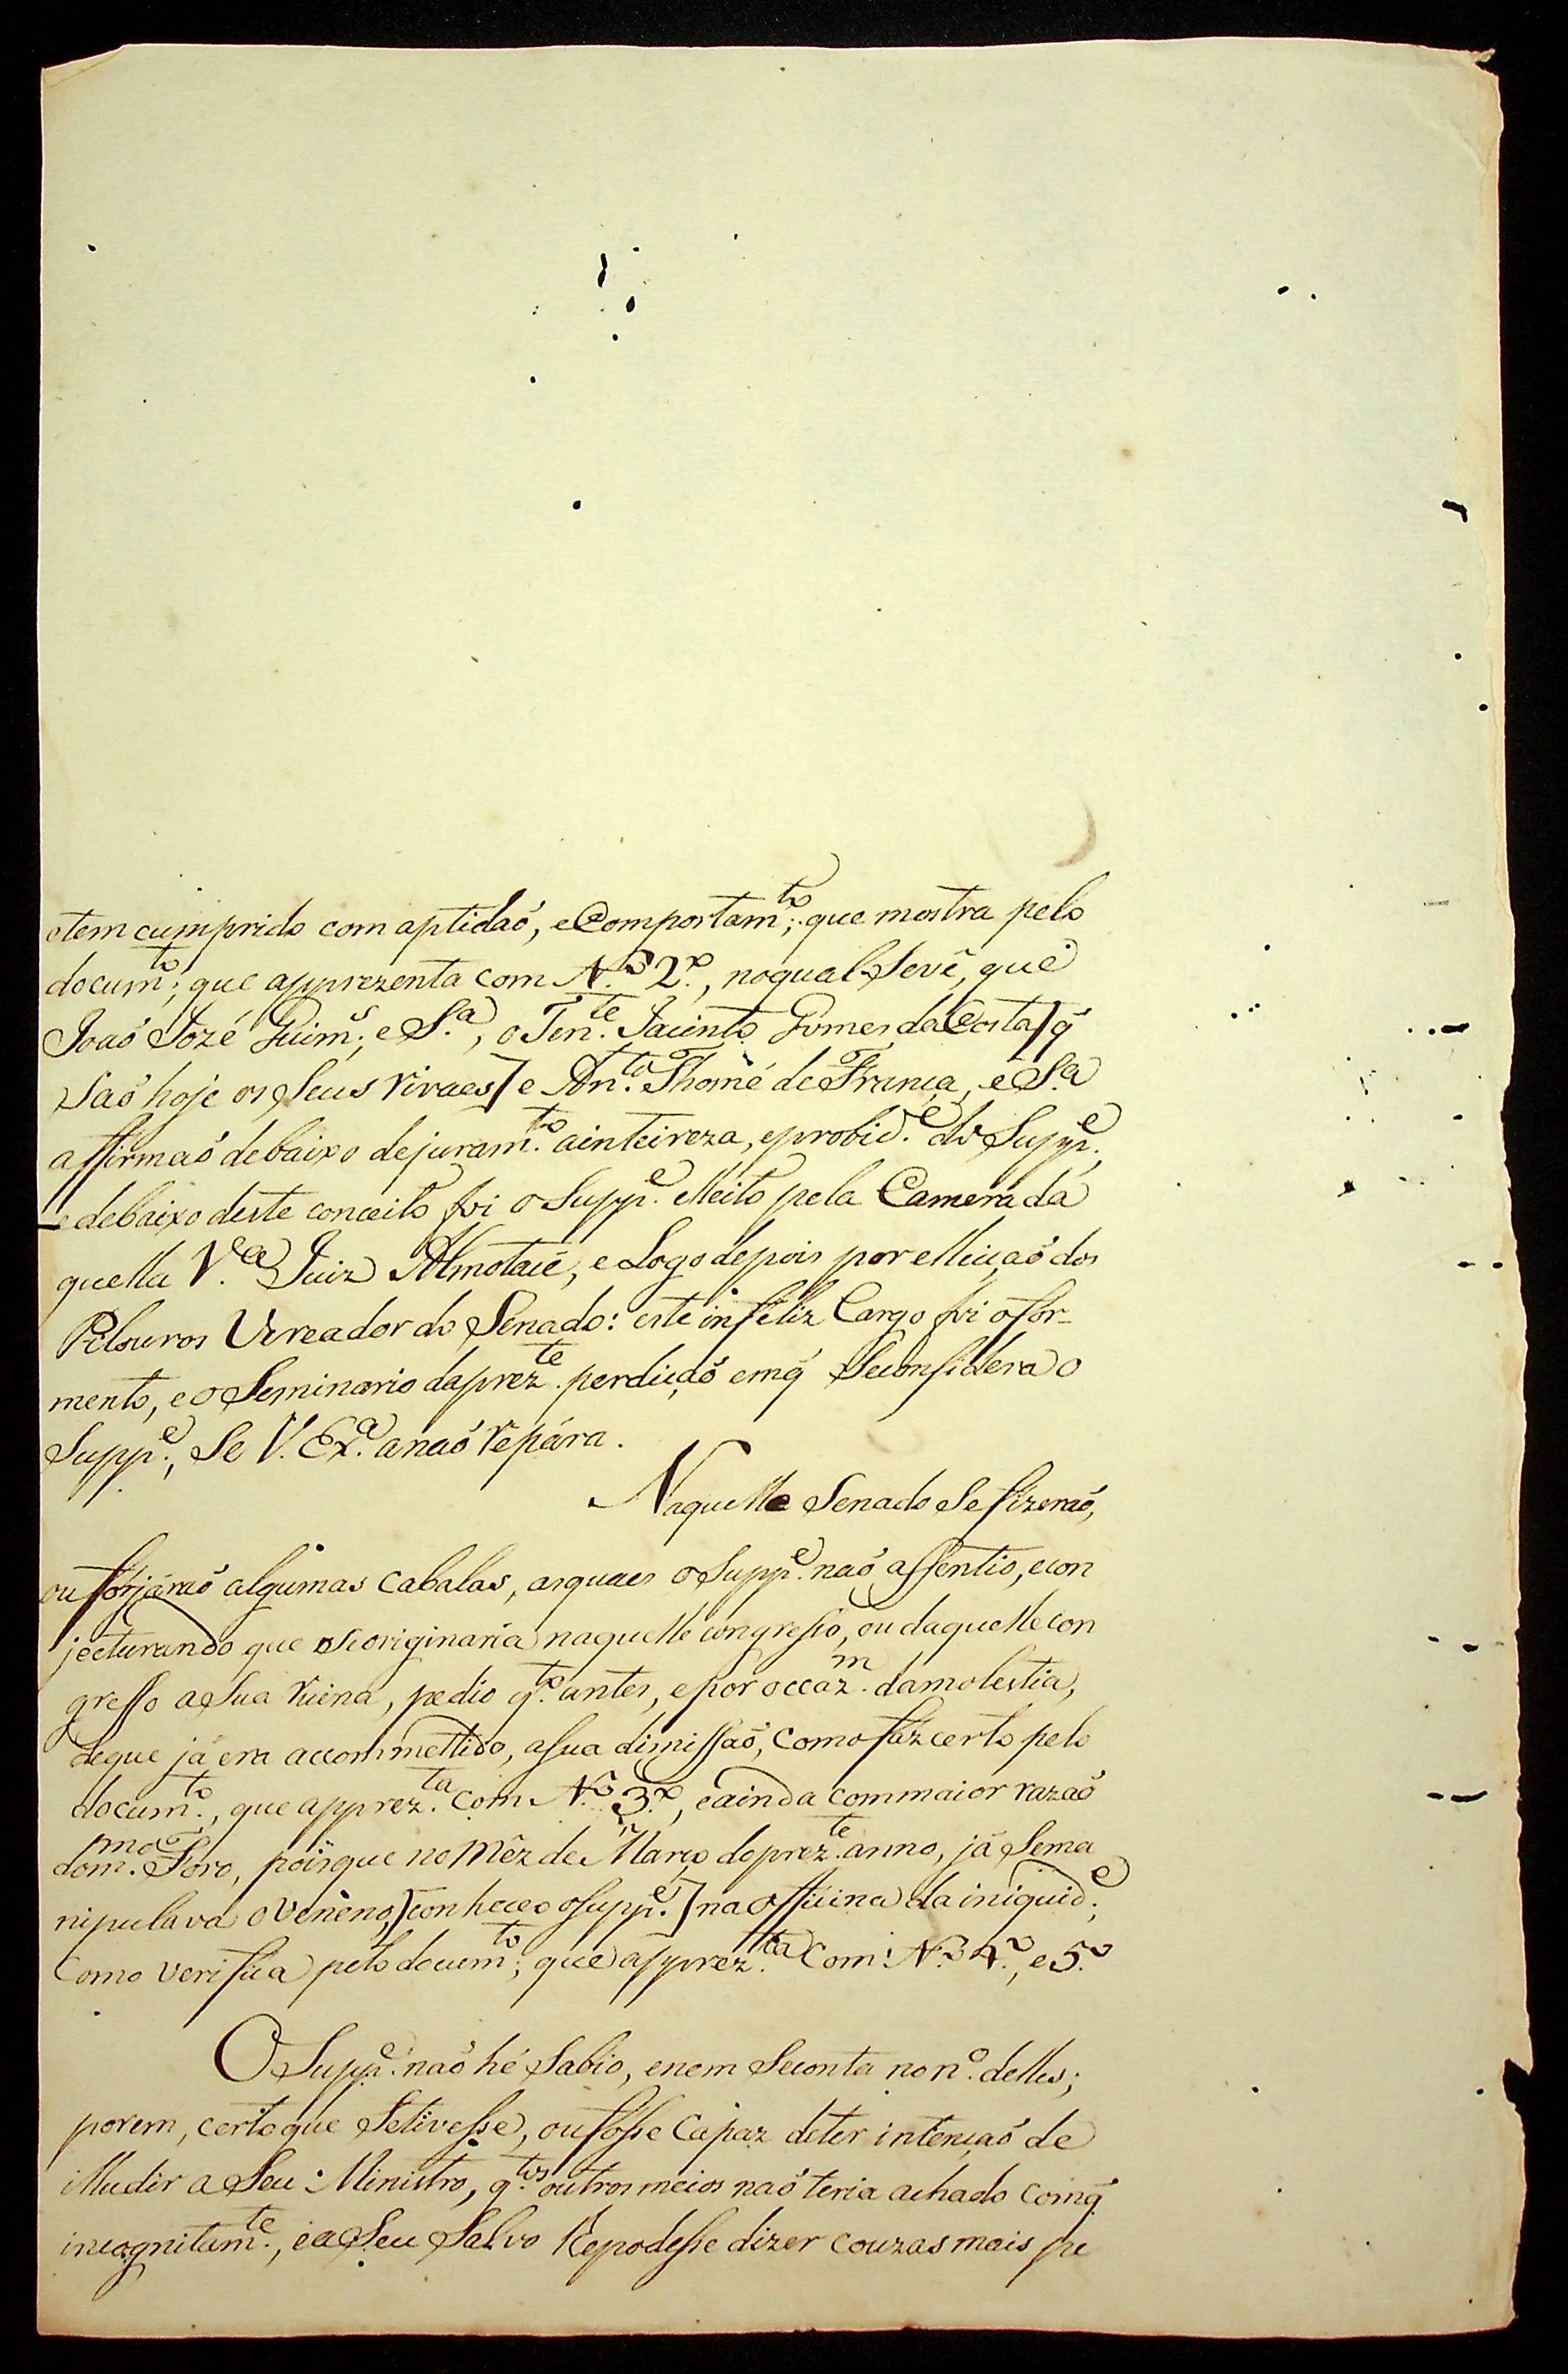 etem cumprido com aptidaõ, eComportam.to; que mostra pelo
docum.to; que apprezenta com N.o 2.o, noqual Sevê, que
Joaõ Jozé Guim.s, e S.a, o Ten.te Jacinto Gomes daCosta] q̃
Saõ hoje os Seus rivaes] e An.to Thomé de França, e S.a
affirmaõ debaixo dejuram.to ainteireza, eprobid.e do Supp.e,
e debaixo deste conceito foi o Supp.e elleito pela Camera da
quella V.a Juiz Almotacé, e Logo depois por elleiçaõ dos
Pelouros Vereador do Senado: este infeliz Cargo foi ofor-
mento, eo Seminario daprez.te perdiçaõ emq̃ Seconsidera o
Supp.e, Se V. Ex.a anaõ repára.
Naquelle Senado Se fizeraõ,
ou forjáraõ algumas Cabalas, asquaes o Supp.e naõ assentio, econ
jecturando que seoriginaria naquelle congresso, ou daquelle con
gresso a Sua ruina, pedio q.to antes, epor occaz.m damolestia,
deque já era accommettido, asua dimissaõ, como fáz certo pelo
docum.to, que apprez.ta com N.o 3.o, eainda commaior razaõ
dom.mo Foro, poisque no Mêz de Março doprez.te anno, já Sema
nipulava oveneno,] conhece osupp.e] naofficina dainiquid.e;
Como verifica pelo docum.to; que apprez.ta Com N.o 4.o, e 5.o
O Supp.e naõ hé Sabio, enem Seconta no n.o delles;
porem, certo que Setivesse, oufosse Capaz deter intençaõ de
illudir a Seu Ministro, q.tos outros meios naõ teria achado comq̃
incognitam.te, ea Seu Salvo lhe podesse dizer couzas mais pe